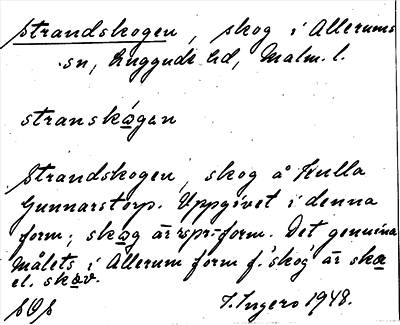 Strandskogen, skog i Allerums
sn, Luggude hd, Malm. l.
stranskǫ́gan
Strandskogen, skog å Kulla
Gunnarstorp. Uppgivet i denna
form; skǫg är rspr-form. Det genuina
målets i Allerum form f. 'skog' är skǫ
el. skǫv.
J. Ingers 1948.